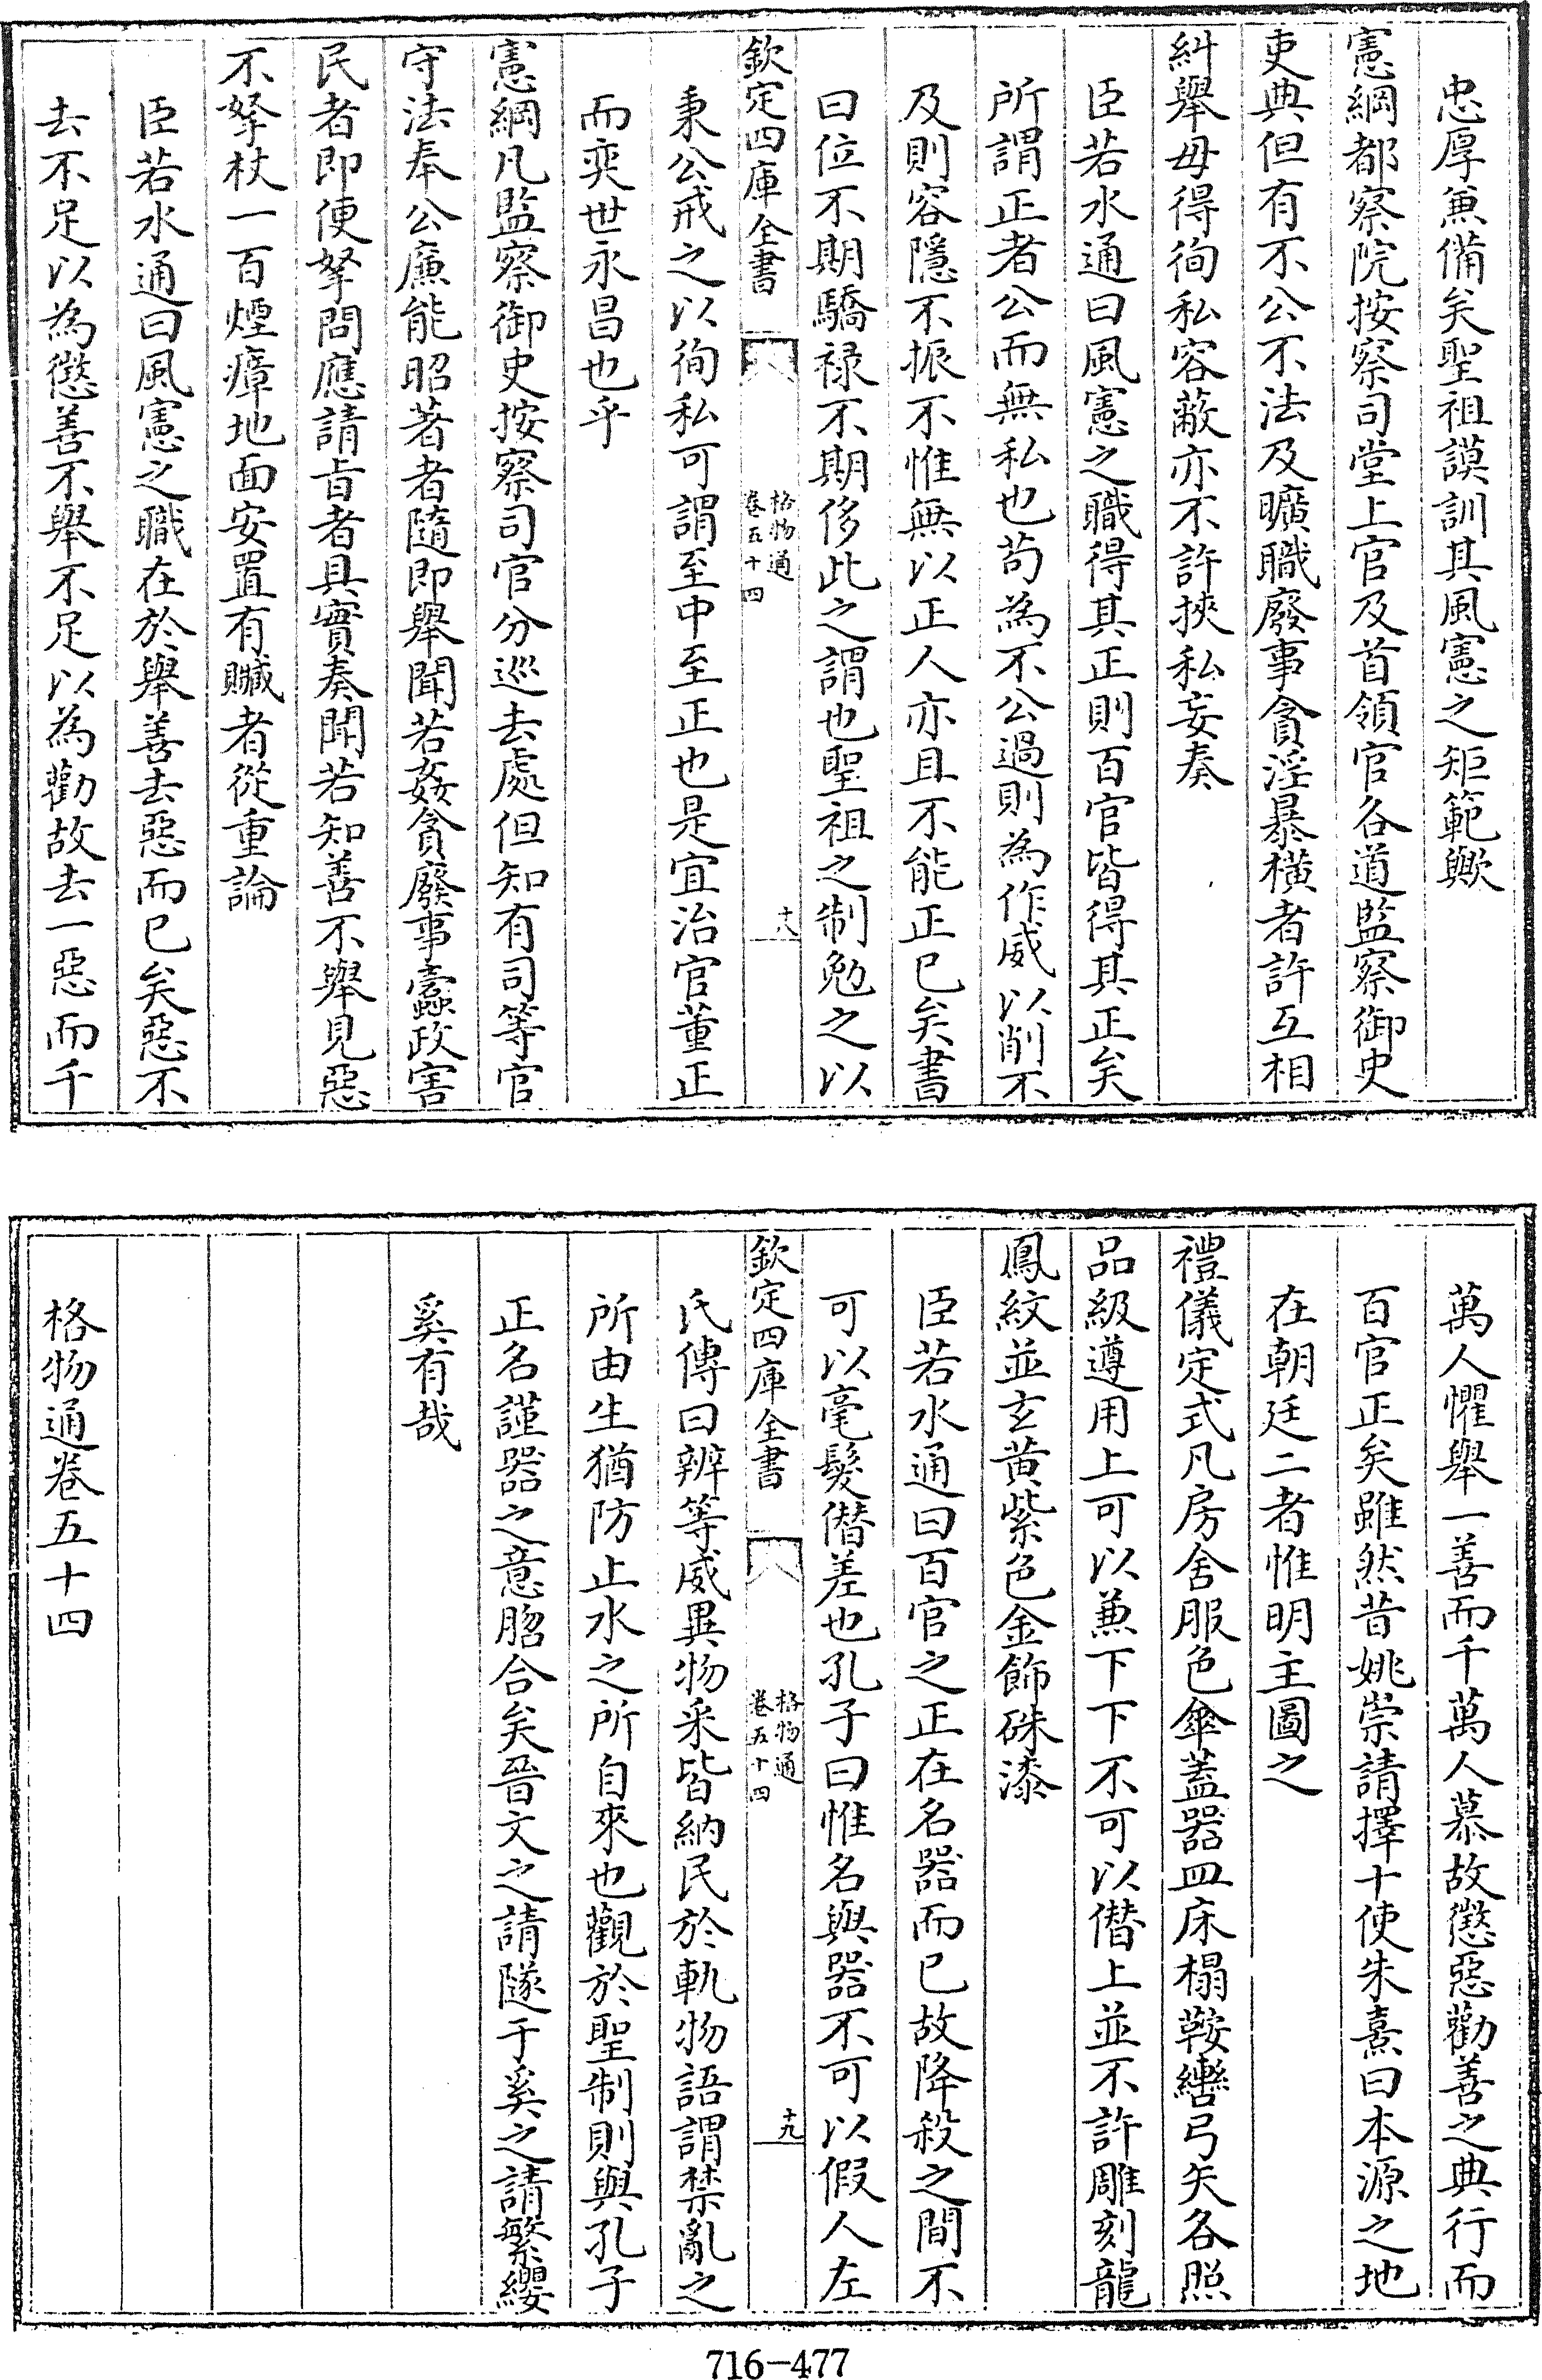 忠厚兼備矣聖祖謨訓其風憲之矩範歟
憲綱都察院按察司堂上官及首領官各道監察御史
吏典但有不公不法及曠職廢事貪淫暴橫者許互相
糾舉毋得徇私容蔽亦不許挾私妄奏
臣若水通曰風憲之職得其正則百官皆得其正矣
所謂正者公而無私也苟為不公過則為作威以削不
及則容隱不振不惟無以正人亦且不能正已矣書
曰位不期驕祿不期侈此之謂也聖祖之制勉之以
欽定四庫全書
格物通
卷五十四
十八
秉公戒之以徇私可謂至中至正也是宜治官董正
而奕世永昌也乎
憲綱凡監察御史按察司官分巡去處但知有司等官
守法奉公廉能昭著者隨即舉聞若姦貪廢事蠹政害
民者即便拏問應請旨者具實奏聞若知善不舉見惡
不拏杖一百煙瘴地面安置有贓者從重論
臣若水通曰風憲之職在於舉善去惡而已矣惡不
去不足以為懲善不舉不足以為勸故去一惡而千
萬人懼舉一善而千萬人慕故懲惡勸善之典行而
百官正矣雖然昔姚崇請擇十使朱熹曰本源之地
在朝廷二者惟明主圖之
禮儀定式凡房舍服色傘蓋器皿床榻鞍轡弓矢各照
品級遵用上可以兼下下不可以僭上並不許雕刻龍
鳳紋並玄黃紫色金飾硃漆
臣若水通曰百官之正在名器而已故降殺之間不
可以毫髮僭差也孔子曰惟名與器不可以假人左
欽定四庫全書
格物通
卷五十四
十九
氏傳曰辨等威異物采皆納民於軌物語謂禁亂之
所由生猶防止水之所自來也觀於聖制則與孔子
正名謹器之意脗合矣晉文之請隧于奚之請繁纓
奚有哉
格物通卷五十四
716-477